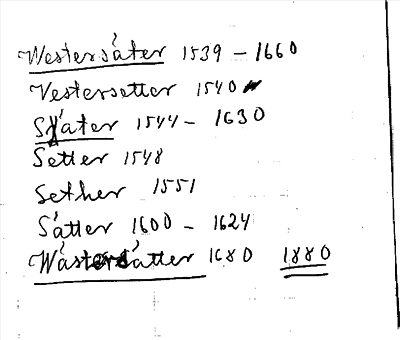 Westersåter 1539 – 1660
Vestersetter 1540
Såter 1544 – 1630
Setter 1548
Sether 1551
Såtter 1600 – 1624
Wåstersåtter 1680 1880